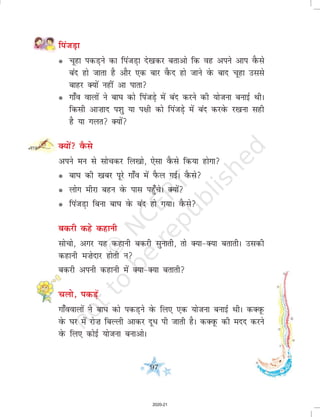 पिंजड़ा
● चूहा पकड़ने का पिंजड़ा देखकर बताओ कि वह अपने आप कैसे
बंद हो जाता है और एक बार कैद हो जाने के बाद चूहा उससे
बाहर क्यों नहीं आ पाता?
● गाँव वालों ने बाघ को पिंजड़े में बंद करने की योजना बनाई थी।
किसी आज़ाद पशु या पक्षी को पिंजड़े में बंद करके रखना सही
है या गलत? क्यों?
क्यों? कैसे
अपने मन से सोचकर लिखो, ऐसा कैसे किया होगा?
● बाघ की खबर पूरे गाँव में फैल गई। कैसे?
● लोग मीरा बहन के पास पहुँचे। क्यों?
● पिंजड़ा बिना बाघ के बंद हो गया। कैसे?
बकरी कहे कहानी
सोचो, अगर यह कहानी बकरी सुनाती, तो क्या-क्या बताती। उसकी
कहानी मजेदार होती न?
बकरी अपनी कहानी में क्या-क्या बताती?
चलो, पकड़ें
गाँववालों ने बाघ को पकड़ने के लिए एक योजना बनाई थी। कक्कू
के घर में रोज़ बिल्ली आकर दूध पी जाती है। कक्कू की मदद करने
के लिए कोई योजना बनाओ।
97
2020-21